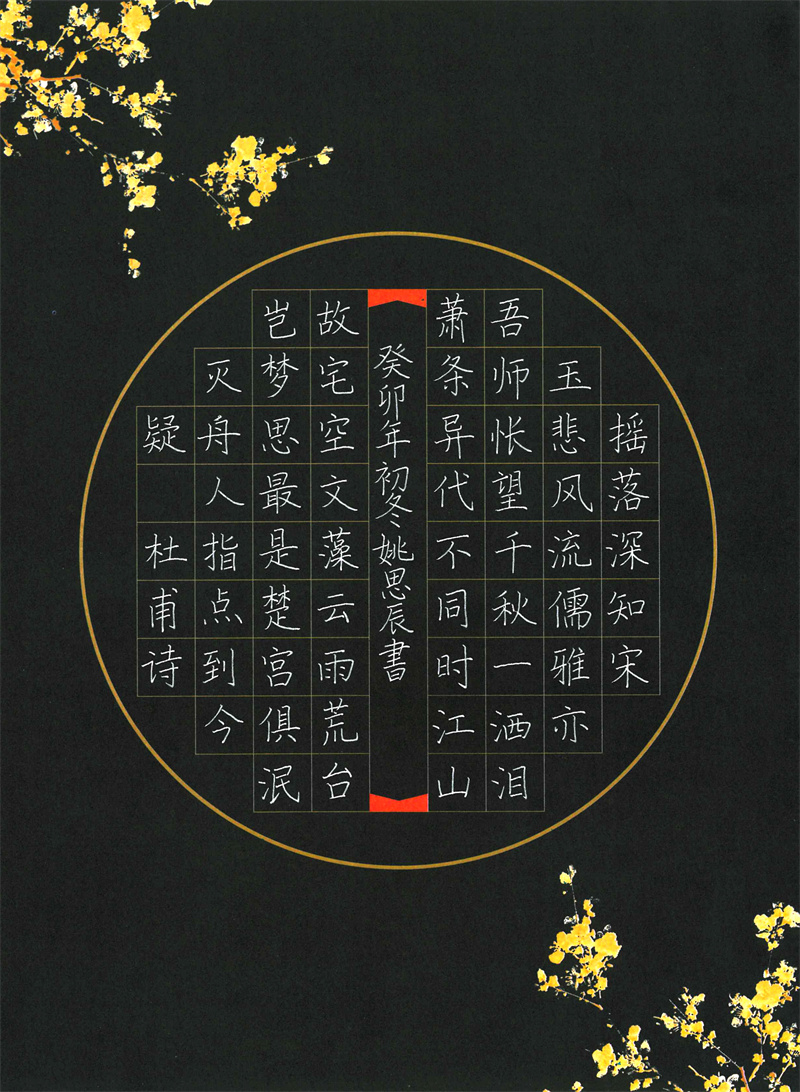 摇落深知宋
玉悲风流儒雅亦
吾师怅望千秋一洒泪
萧条异代不同时江山
癸卯年初冬姚思辰書
故宅空文藻云雨荒台
岂梦思最是楚宫俱泯
灭舟人指点到今
疑 杜甫诗